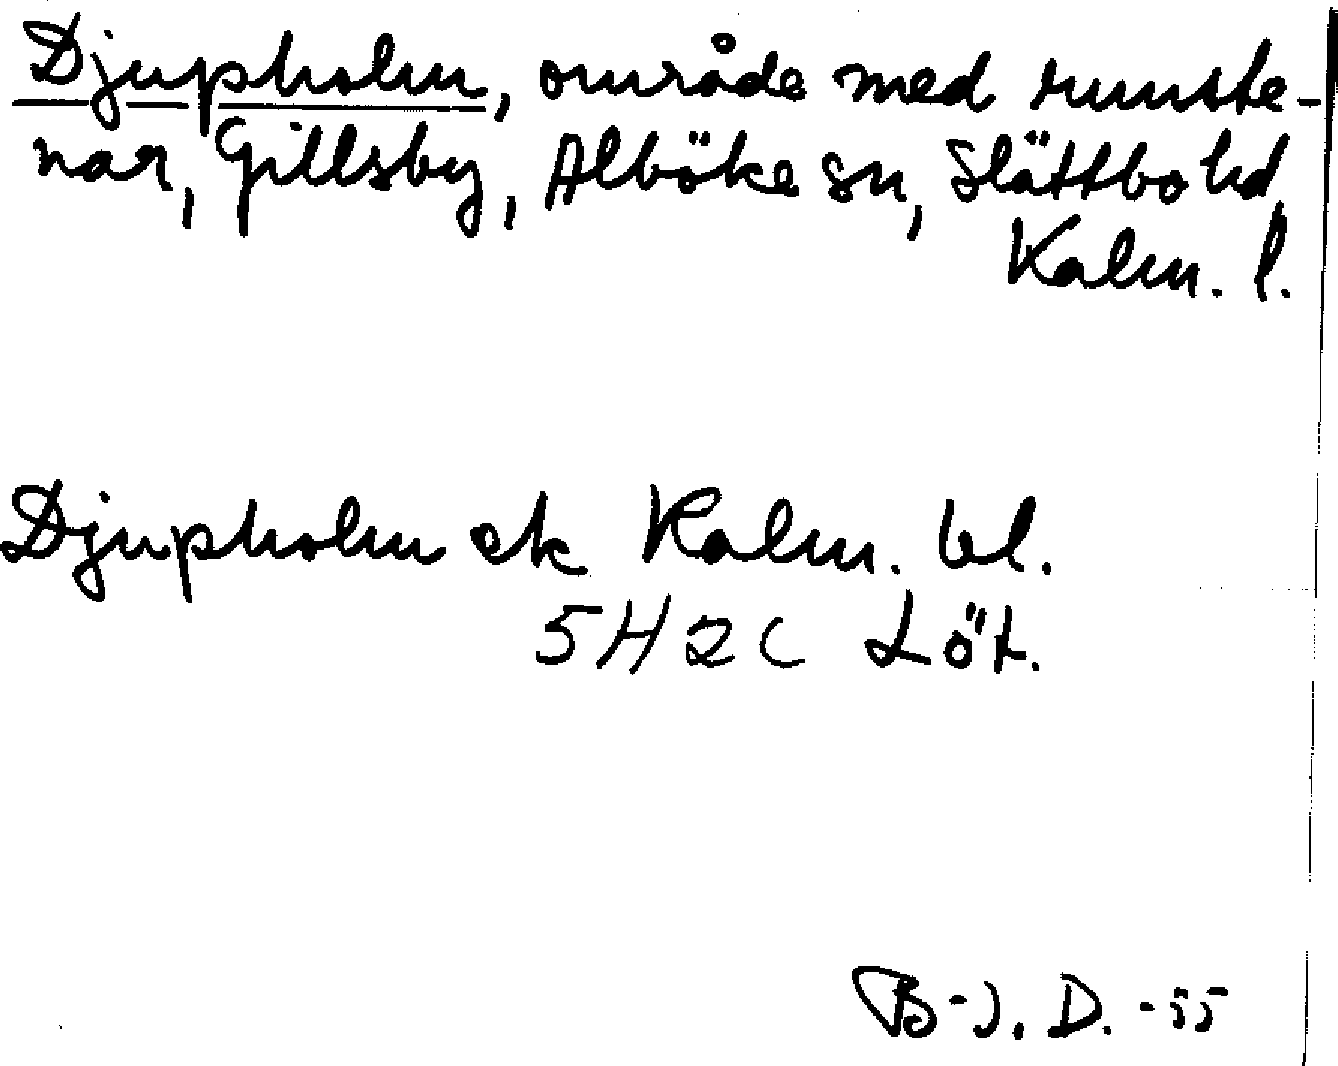 Djupholm, område med runste-
nar, Gillsby, Alböke sn, Slättbo hd,
Kalm. l.
Djupholm ek Kalm. bl.
5H2C Löt.
B-J. D. -55